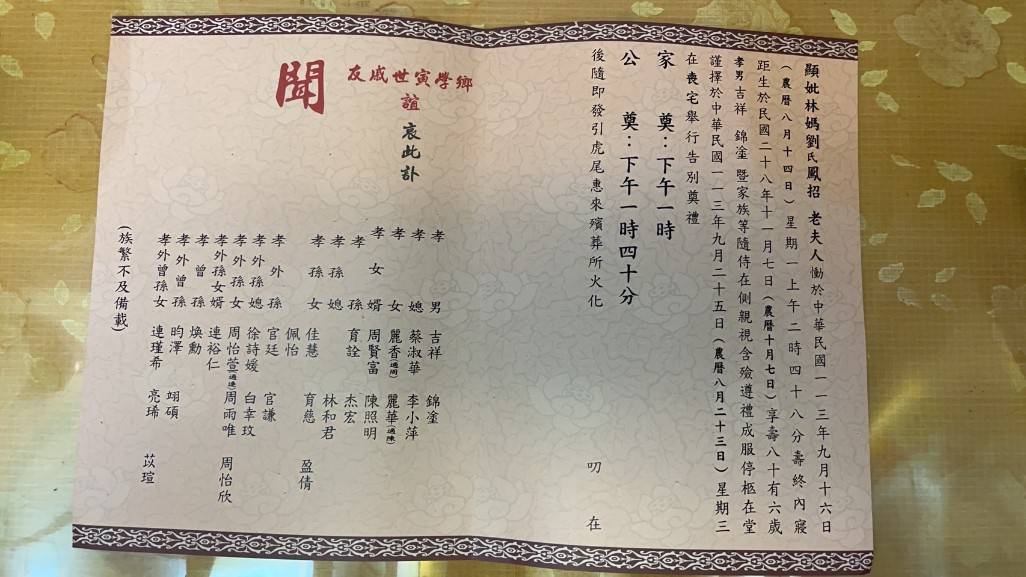 顯妣林媽劉氏鳳招 老夫人慟於中華民國一一三年九月十六日
(農曆八月十四日)星期一上午二時四十八分壽終內寢
距生於民國二十八年十一月七日(農曆十月七日)享壽八十有六歲
孝男吉祥 錦塗 暨家族等隨侍在側親視含殮遵禮成服停柩在堂
謹擇於中華民國一一三年九月二十五日(農曆八月二十三日)星期三
在喪宅舉行告別奠禮
家 奠:下午一時
公 奠:下午一時四十分
後隨即發引虎尾惠來殯葬所火化
叨 在
鄉學寅世戚友
誼
哀此訃
聞
孝男 吉祥 錦塗
孝媳 蔡淑華 李小萍
孝女 麗香(適周) 麗華(適陳)
孝女婿 周賢富 陳照明
孝孫 育詮 杰宏
孝孫媳 林和君
孝孫女 佳慧 育慈 盈倩
佩怡
孝外孫 官廷 官謙
孝外孫媳 徐詩媛 白幸玟
孝外孫女 周怡萱(適連) 周雨唯 周怡欣
孝外孫女婿 連裕仁
孝曾孫 煥勳
孝外曾孫 昀澤 翊碩
孝外曾孫女 連瑾希 亮琋 苡瑄
(族繁不及備載)